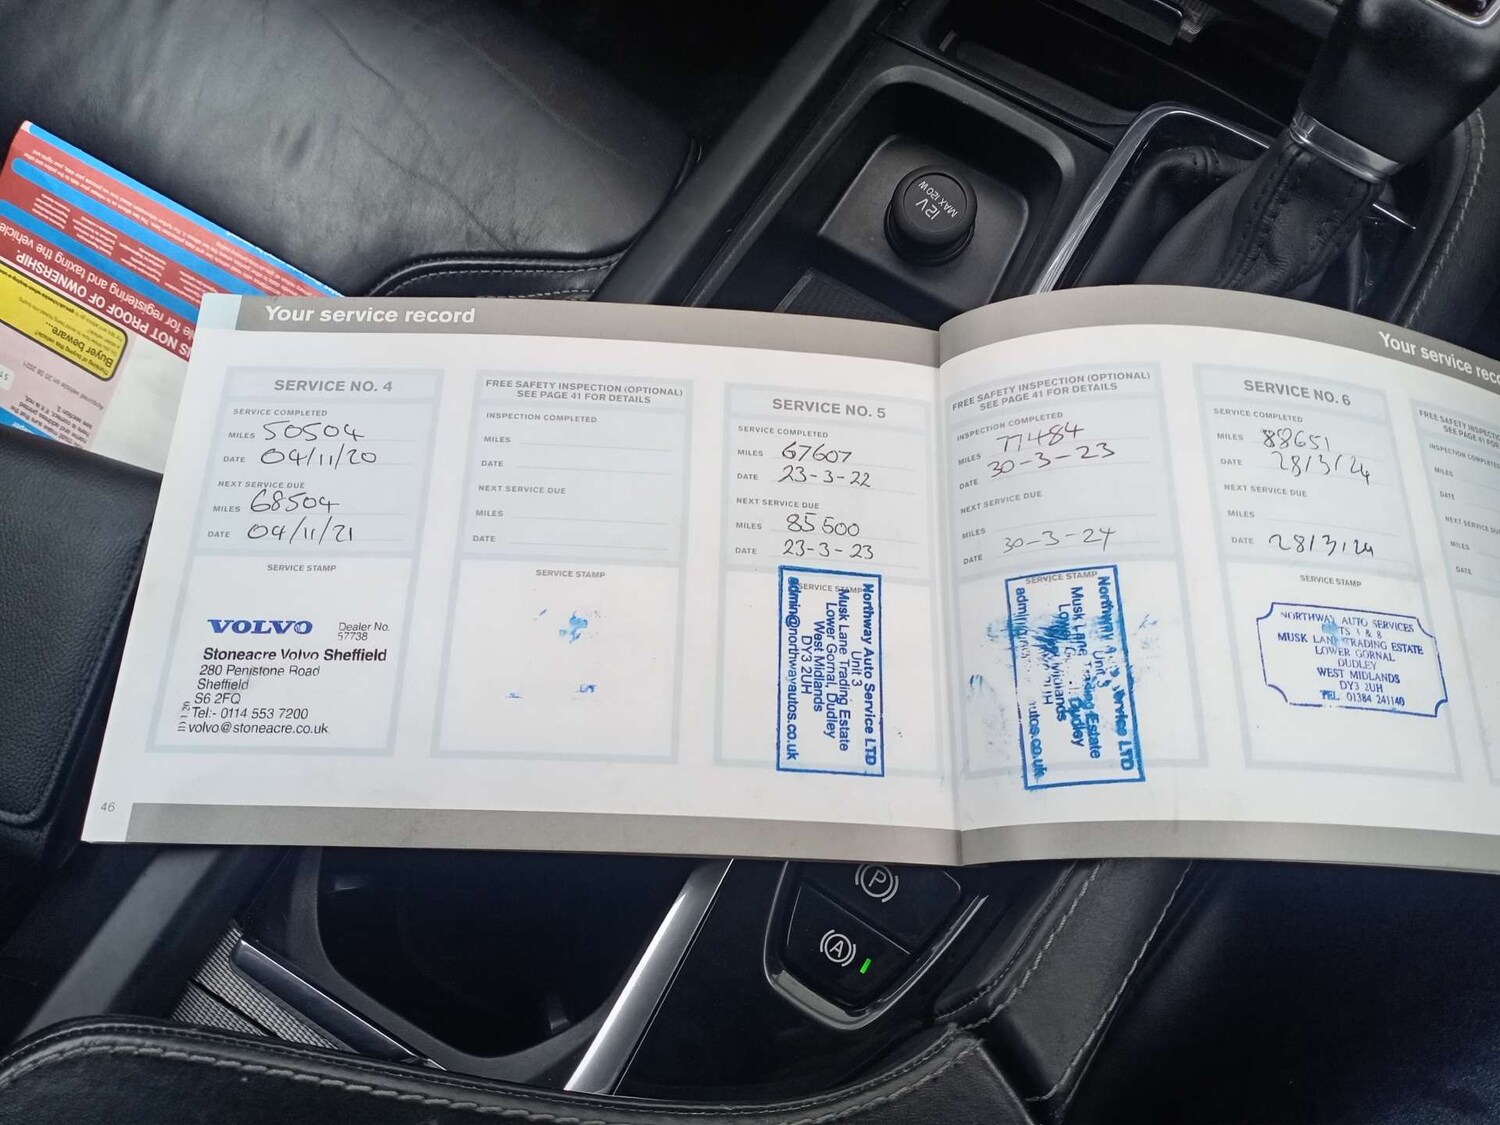 12V
MAX 120W
IS NOT PROOF OF OWNERSHIP
le for registering and taxing the vehicle
Buyer beware...
Your service record
SERVICE NO. 4
SERVICE COMPLETED
MILES 50504
DATE 04/11/20
NEXT SERVICE DUE
MILES 68504
DATE 04/11/21
SERVICE STAMP
VOLVO Dealer No.
57738
Stoneacre Volvo Sheffield
280 Penistone Road
Sheffield
S6 2FQ
Tel:- 0114 553 7200
volvo@stoneacre.co.uk
46
FREE SAFETY INSPECTION (OPTIONAL)
SEE PAGE 41 FOR DETAILS
INSPECTION COMPLETED
MILES
DATE
NEXT SERVICE DUE
MILES
DATE
SERVICE STAMP
SERVICE NO. 5
SERVICE COMPLETED
MILES 67607
DATE 23-3-22
NEXT SERVICE DUE
MILES 85600
DATE 23-3-23
SERVICE STAMP
Northway Auto Service LTD
Unit 3
Musk Lane Trading Estate
Lower Gornal, Dudley
West Midlands
DY3 2UH
admin@northwayautos.co.uk
FREE SAFETY INSPECTION (OPTIONAL)
SEE PAGE 41 FOR DETAILS
INSPECTION COMPLETED
MILES 77484
DATE 30-3-23
NEXT SERVICE DUE
MILES
DATE 30-3-24
SERVICE STAMP
Northway Service LTD
Unit 3
Musk Lane Estate
Dudley
Midlands
Your service reco
SERVICE NO. 6
SERVICE COMPLETED
MILES 88651
DATE 28/3/24
NEXT SERVICE DUE
MILES
DATE 28/3/24
SERVICE STAMP
NORTHWAY AUTO SERVICES
MUSK LANE TRADING ESTATE
LOWER GORNAL
DUDLEY
WEST MIDLANDS
DY3 2UH
TEL 01384 241140
FREE SAFETY INSPECTIO
SEE PAGE 41 FOR
INSPECTION COMPLETED
MILES
DATE
NEXT SERVICE DUE
MILES
DATE
P
A